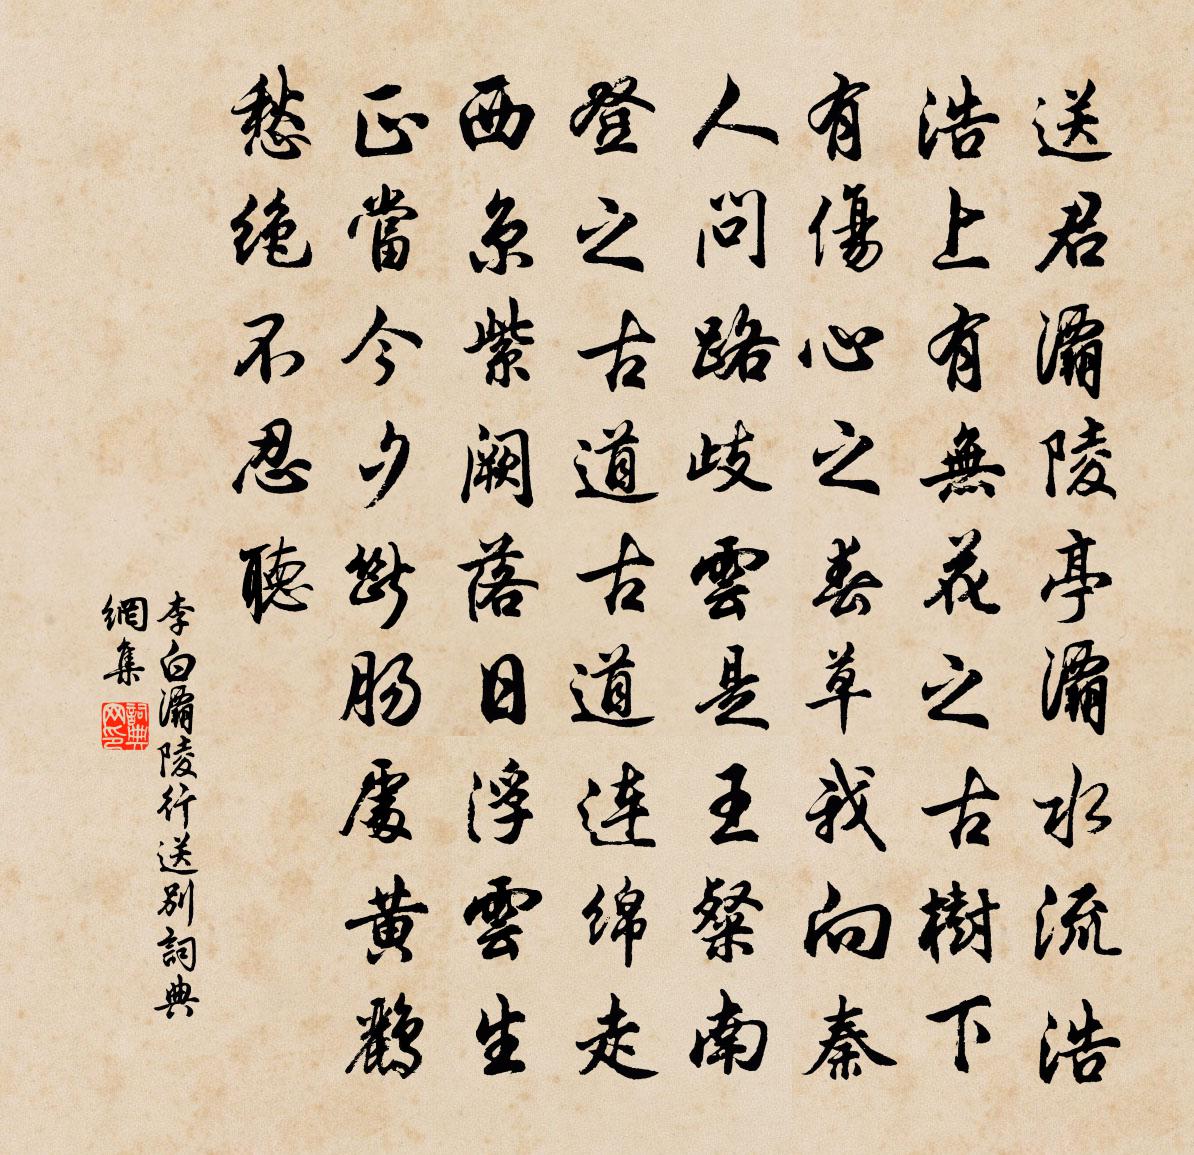 送君灞陵亭灞水流浩
浩上有無花之古樹下
有傷心之春草我向秦
人問路歧雲是王粲南
登之古道古道連綿走
西京紫闕落日浮雲生
正當今夕斷腸處黃鸝
愁絕不忍聽
李白灞陵行送別詞典
網集
詞典
网印